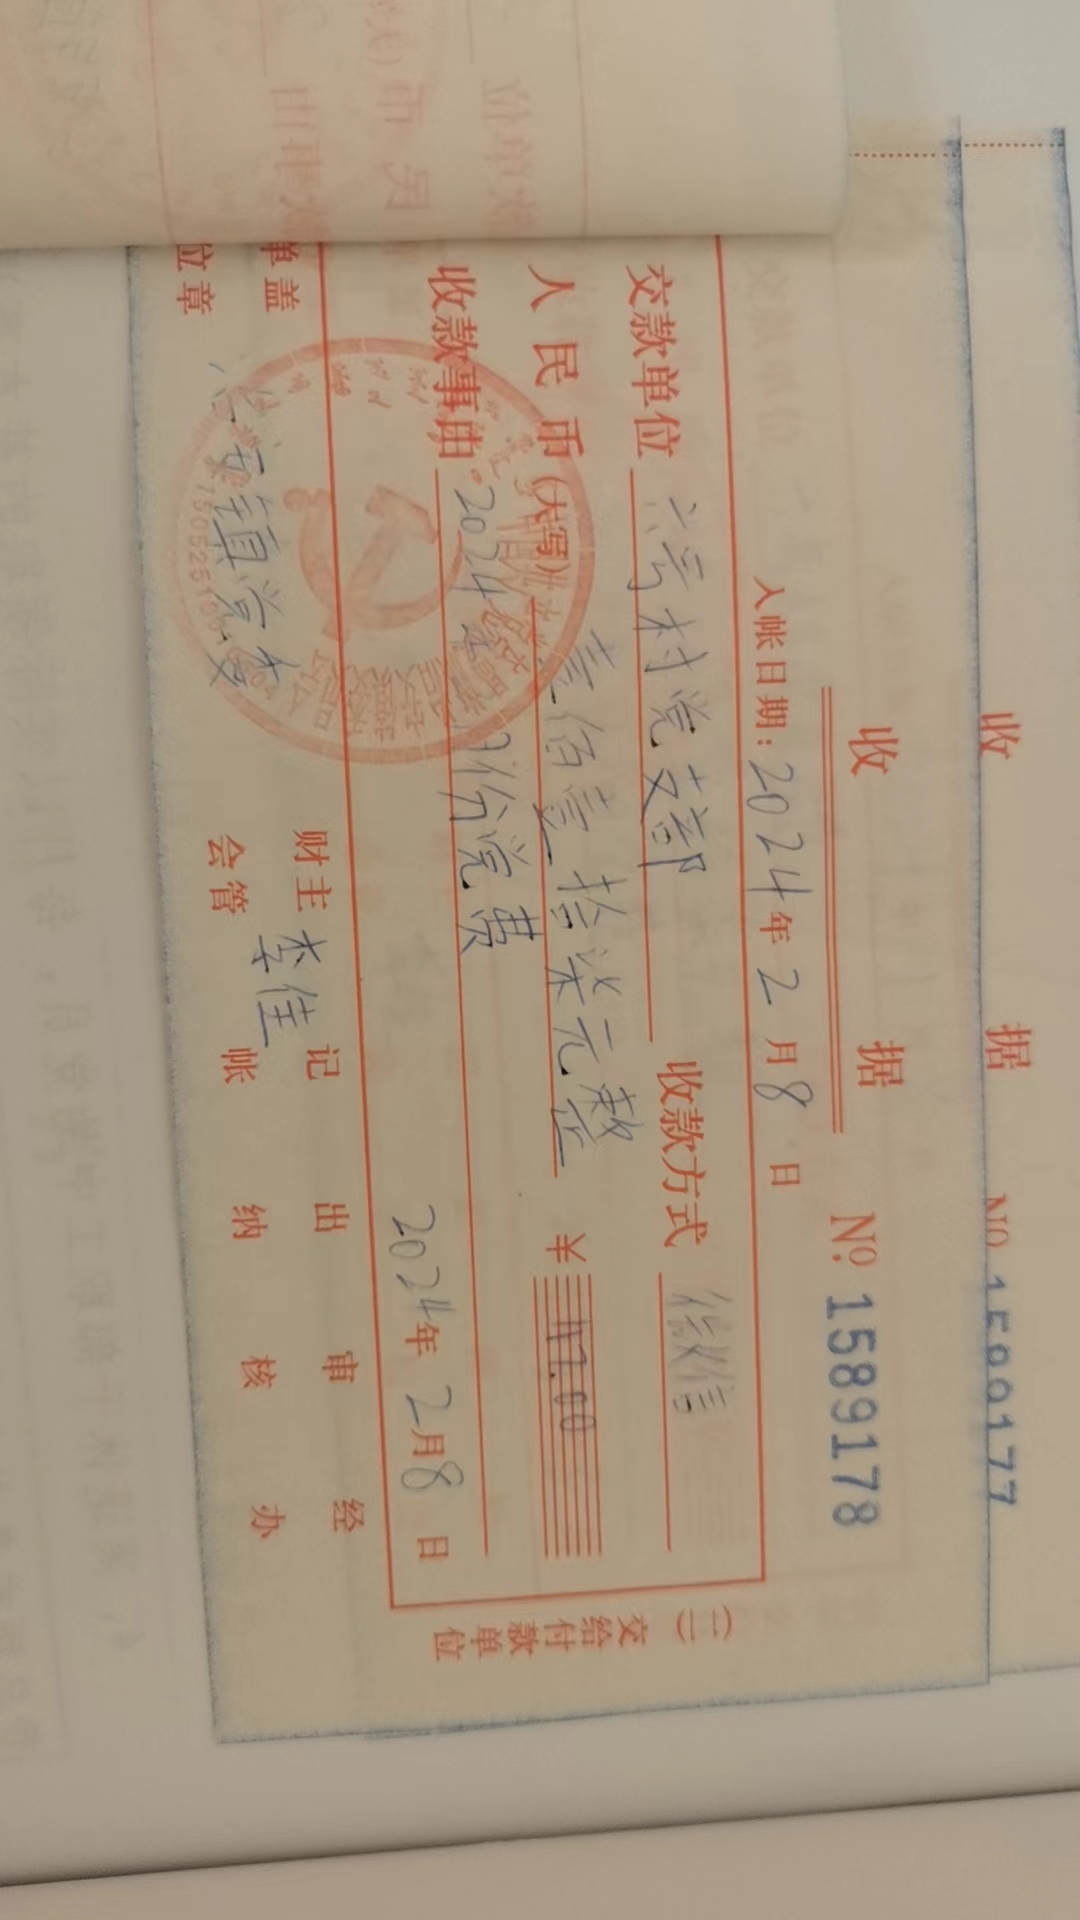 收 据
№ 1589177
收 据
№: 1589178
入帐日期: 2024年 2月 8日
交款单位 六号村党支部 收款方式 微信
人民币(大写) 壹佰壹拾柒元整 ¥ 117.00
收款事由 2024年 月份党费
2024年 2月 8日
单位盖章 镇党委
财会主管 李佳 记帐 出纳 审核 经办
(二)交给付款单位